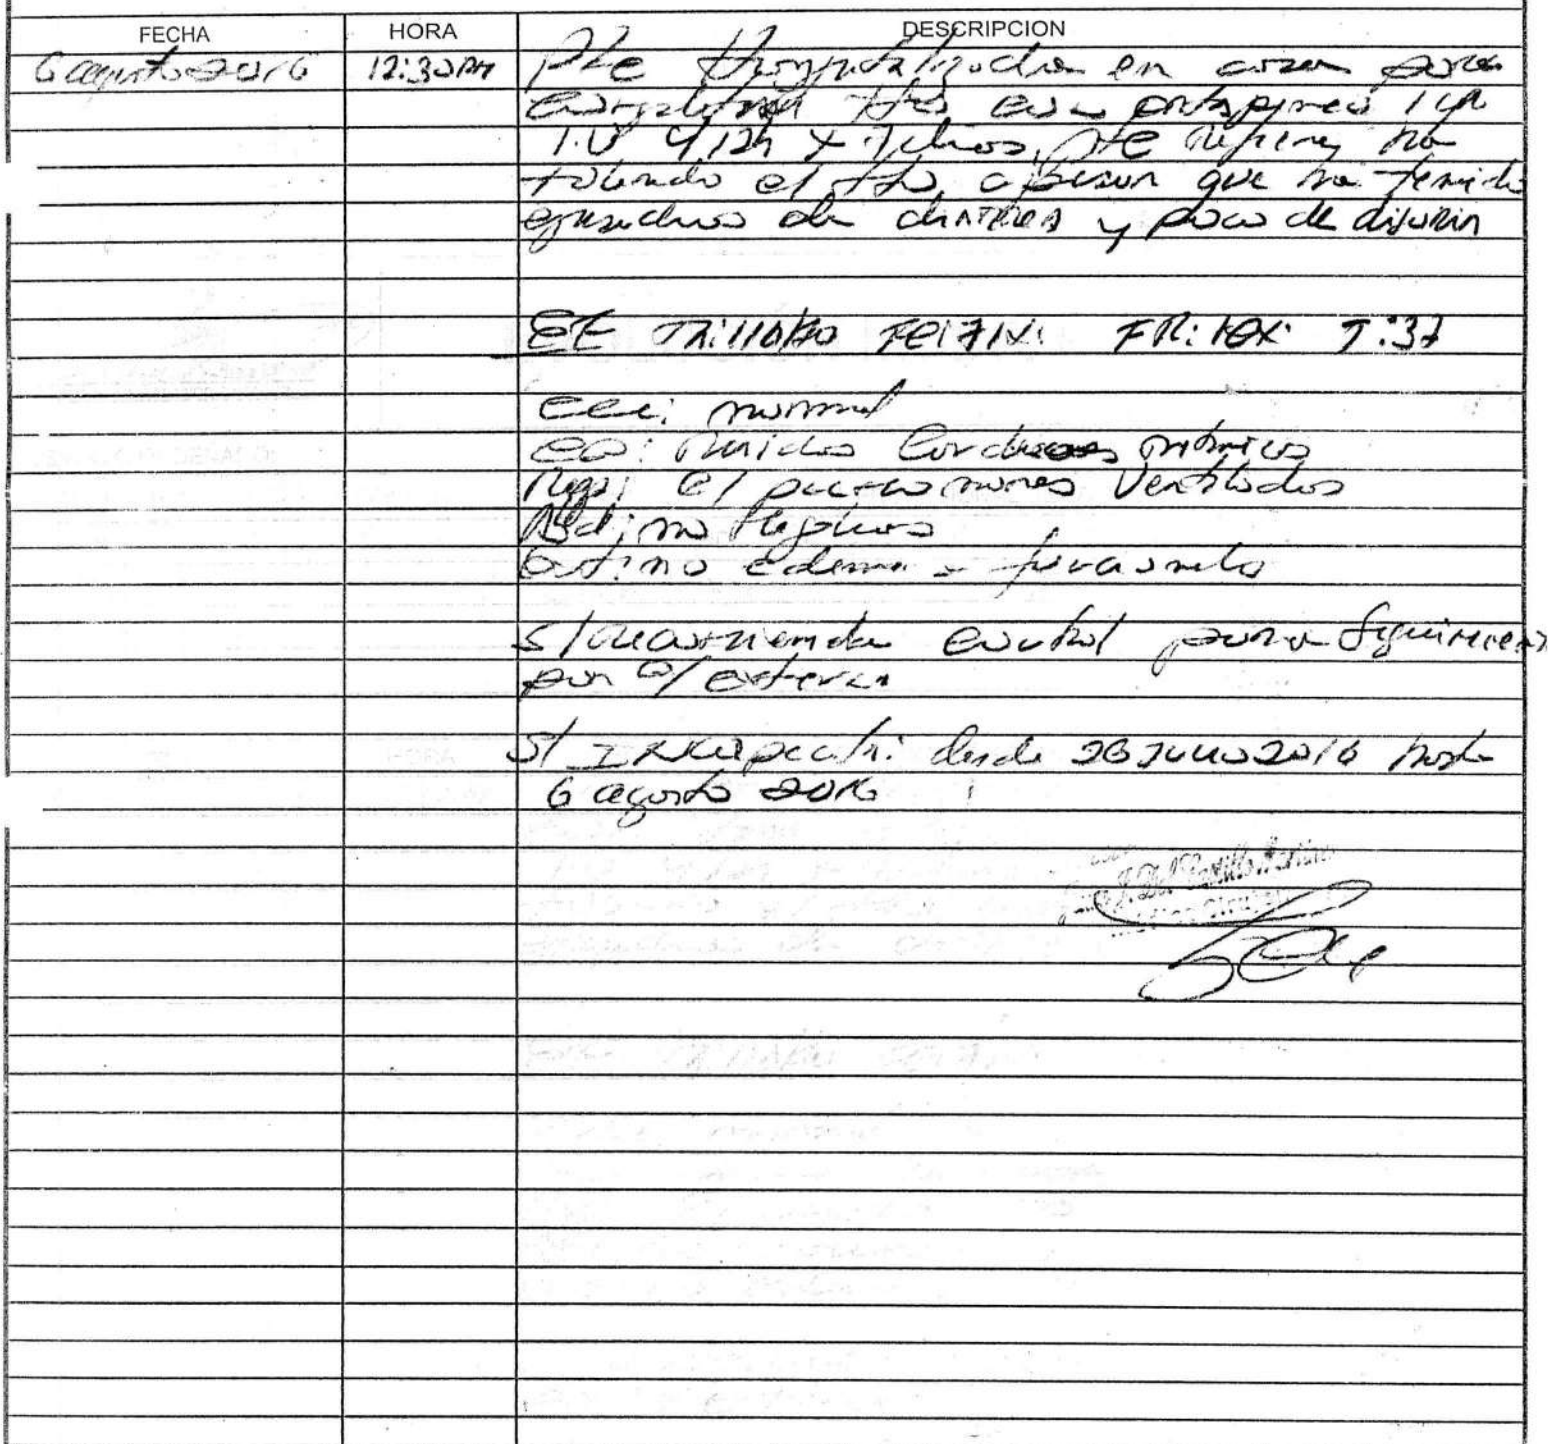 FECHA HORA DESCRIPCION
6 agosto 2016 12:30PM Pte Hospitalizada en casa para
completar tto con 1 gr
I.V c/12h x 7 dias, pte refiere ha
tolerado el tto, a pesar que ha tenido
episodios de diarrea y poco de disuria
EF TA:110/70 FC:71x' FR:18x' T:37
ccc: normal
cp: Ruidos Cardiacos ritmicos
Rsp: c/ pulmones Ventilados
Abd: no
Ext: no edema
s/ recomienda control para seguimiento
por c/ externa
s/ desde 26 Julio 2016 hasta
6 agosto 2016
J. Del Castillo